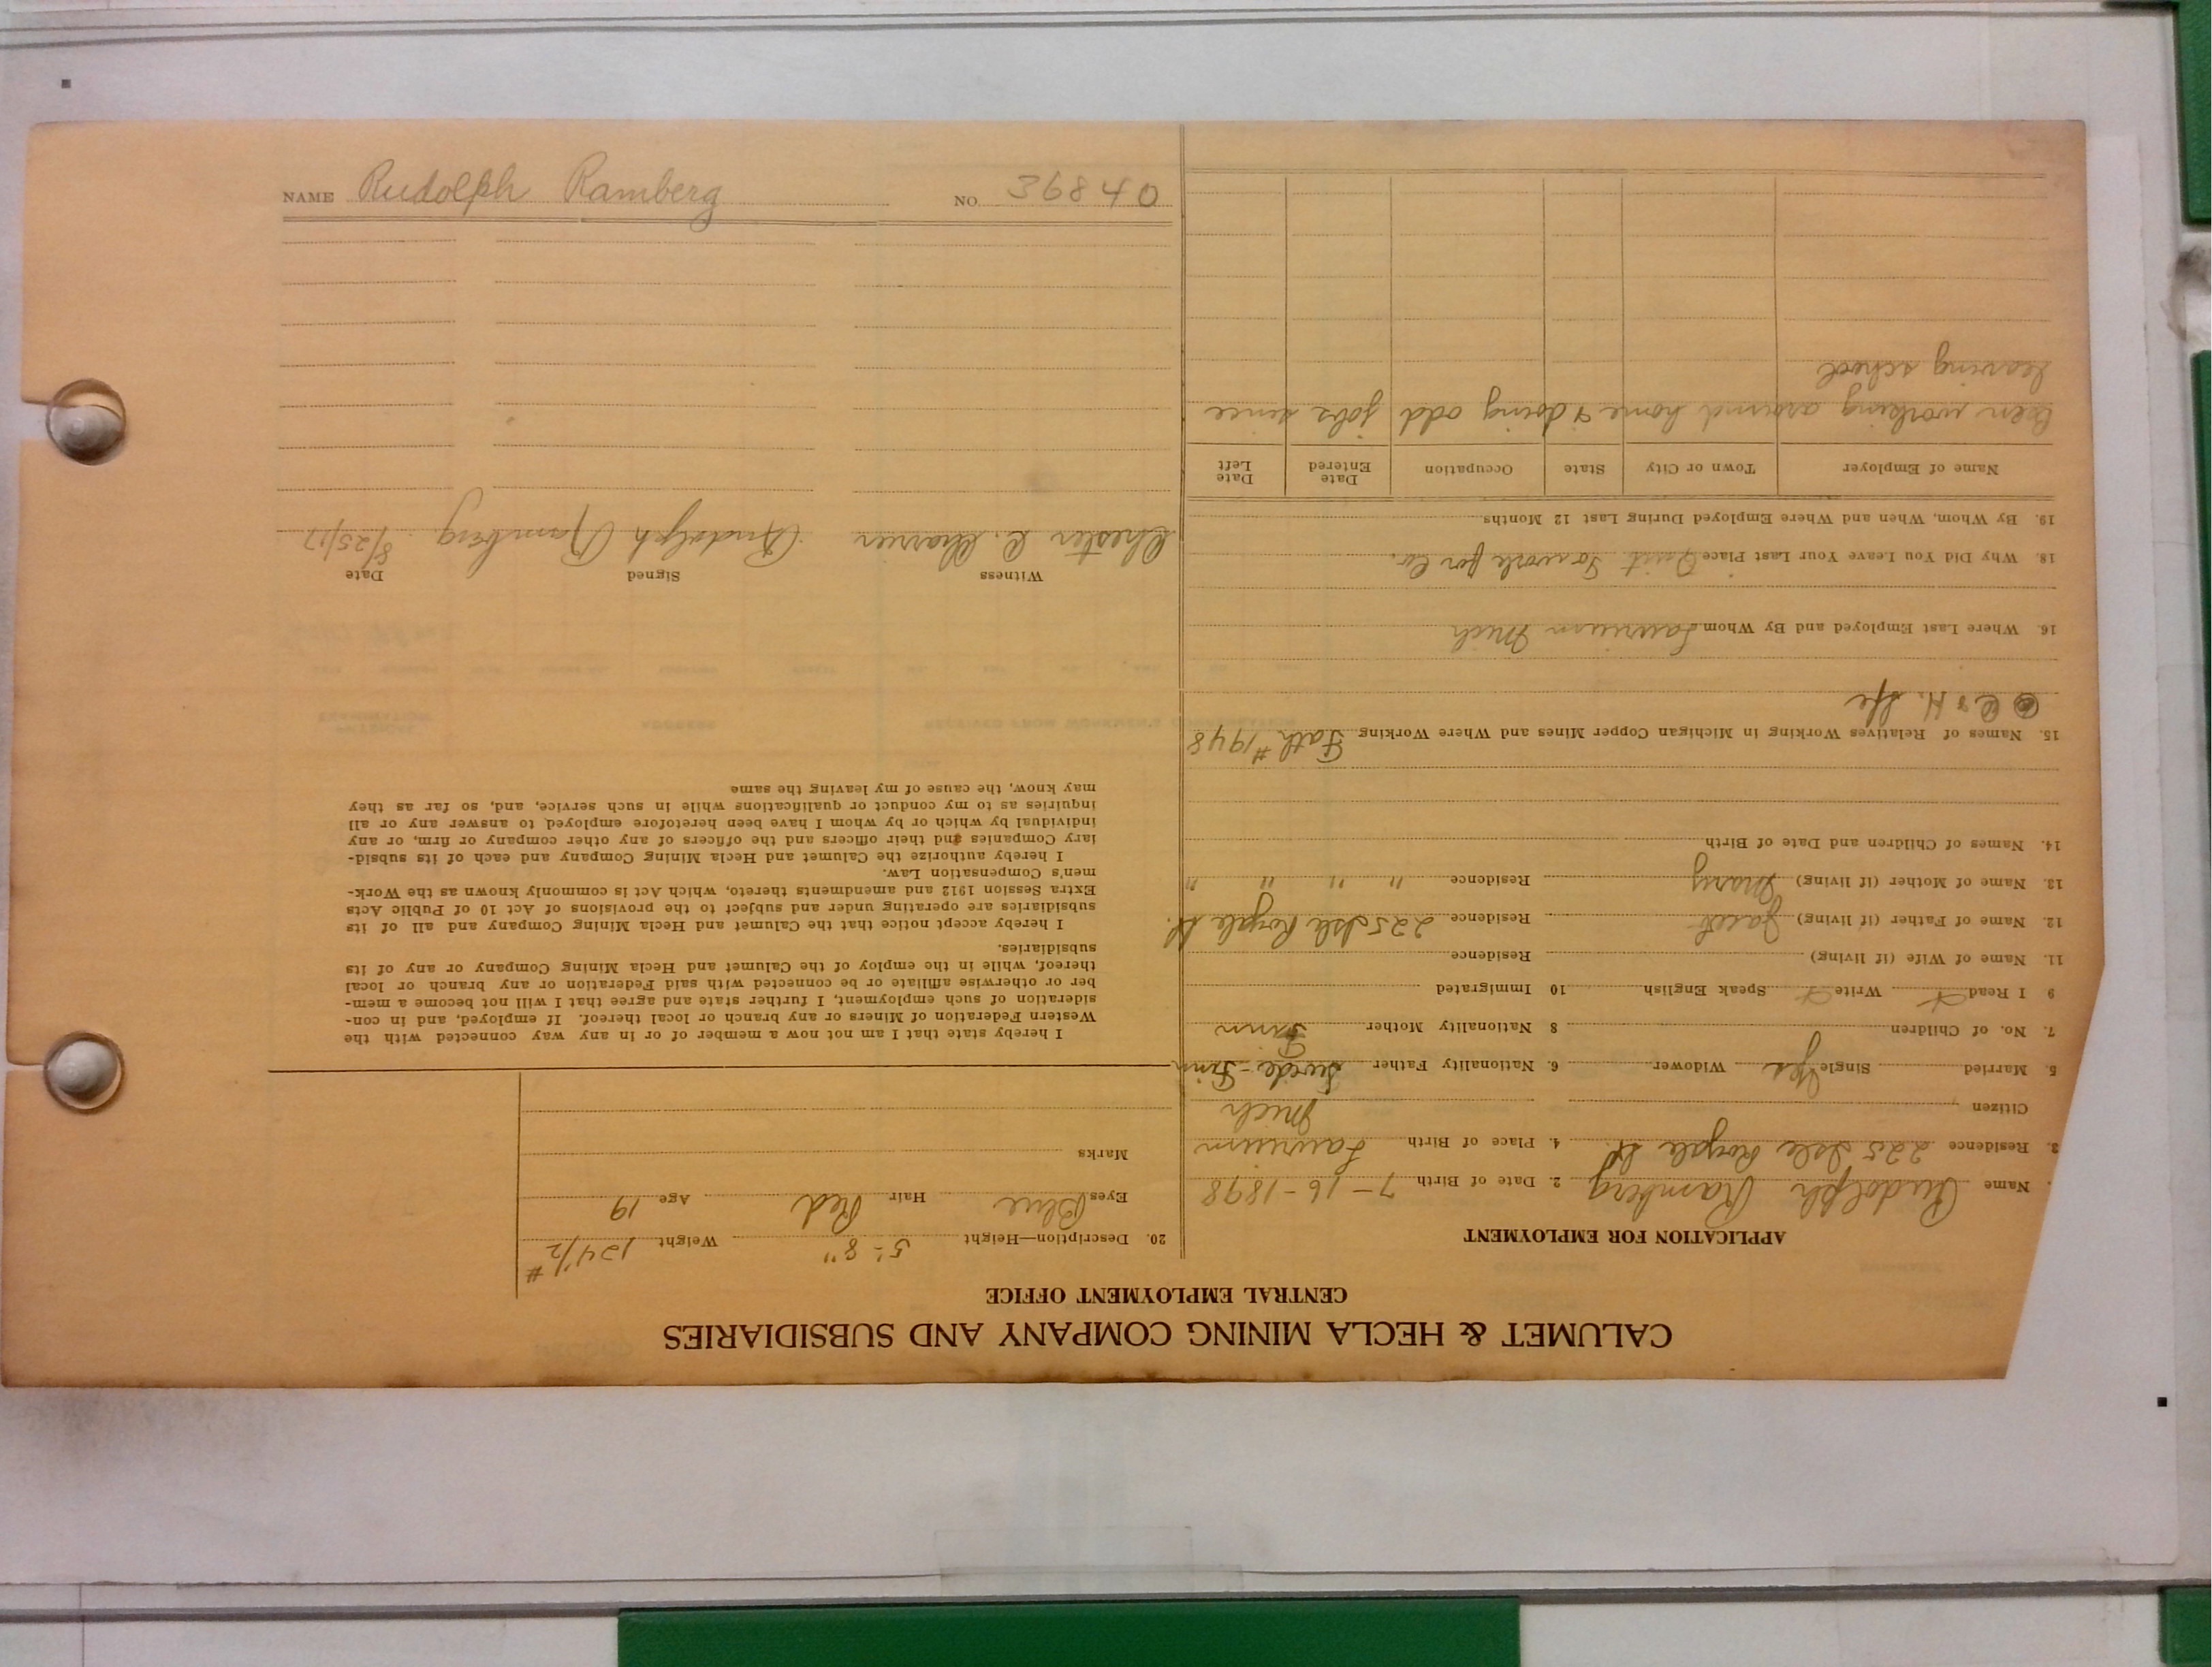 CALUMET & HECLA MINING COMPANY AND SUBSIDIARIES
CENTRAL EMPLOYMENT OFFICE
APPLICATION FOR EMPLOYMENT
Name Rudolph Ramberg 2. Date of Birth 7-16-1898
3. Residence 225 Isle Royale St. 4. Place of Birth Laurium
Citizen Mich
5. Married Single Yes Widower 6. Nationality Father Swede-Finn
7. No. of Children 8 Nationality Mother Finn
9 I Read Write Speak English 10 Immigrated
11. Name of Wife (if living) Residence
12. Name of Father (if living) Jacob Residence 225 Isle Royale St.
13. Name of Mother (if living) Mary Residence " " " "
14. Names of Children and Date of Birth
15. Names of Relatives Working in Michigan Copper Mines and Where Working Fath #1948
C & H.
16. Where Last Employed and By Whom Laurium Mich
18. Why Did You Leave Your Last Place Quit To work for Co.
19. By Whom, When and Where Employed During Last 12 Months
Name of Employer Town or City State Occupation Date Entered Date Left
Been working around home & doing odd jobs since
leaving school
20. Description—Height 5'-8" Weight 124½ #
Eyes Blue Hair Red Age 19
Marks
I hereby state that I am not now a member of or in any way connected with the
Western Federation of Miners or any branch or local thereof. If employed, and in con-
sideration of such employment, I further state and agree that I will not become a mem-
ber or otherwise affiliate or be connected with said Federation or any branch or local
thereof, while in the employ of the Calumet and Hecla Mining Company or any of its
subsidiaries.
I hereby accept notice that the Calumet and Hecla Mining Company and all of its
subsidiaries are operating under and subject to the provisions of Act 10 of Public Acts
Extra Session 1912 and amendments thereto, which Act is commonly known as the Work-
men's Compensation Law.
I hereby authorize the Calumet and Hecla Mining Company and each of its subsid-
iary Companies and their officers and the officers of any other company or firm, or any
individual by which or by whom I have been heretofore employed, to answer any or all
inquiries as to my conduct or qualifications while in such service, and, so far as they
may know, the cause of my leaving the same
Witness Signed Date
Chester C. Rudolph Ramberg 8/25/17
NAME Rudolph Ramberg NO. 36840